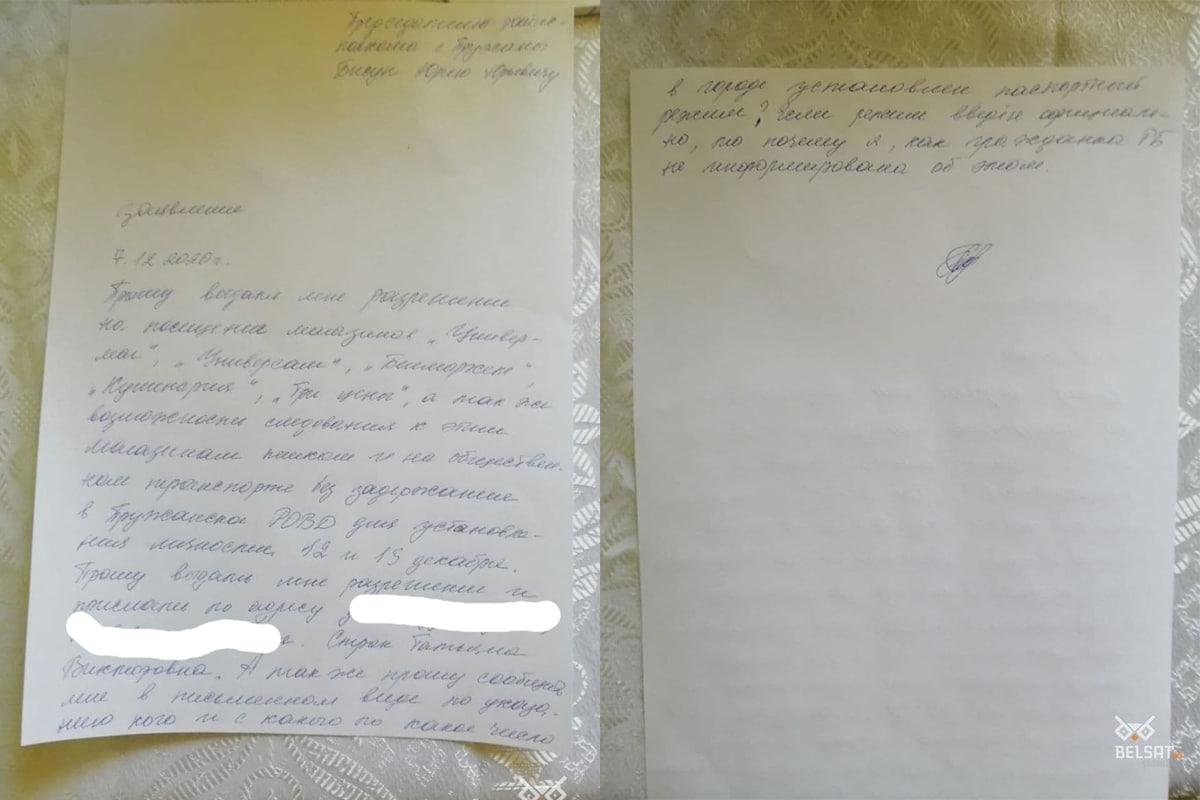 Председателю райис-
полкома г. Пружаны
Бисун Юрию Юрьевичу
Заявление
7.12.2020 г.
Прошу выдать мне разрешение
на посещение магазинов „Универ-
маг“, „Универсам“, „Бигмаржет“,
„Кулинария“, „Три цены“, а так же
возможности следования к этим
магазинам пешком и на обществен-
ном транспорте без задержание
в Пружанское РОВД для установле-
ния личности 12 и 13 декабря.
Прошу выдать мне разрешение и
прислать по адресу
Страк Татьяна
Викторовна. А так же прошу сообщить
мне в письменном виде по указа-
нию кого и с какого по какое число
в городе установлен паспортный
режим? Если режим введён официаль-
но, то почему я, как гражданка РБ
не информирована об этом.
BELSAT